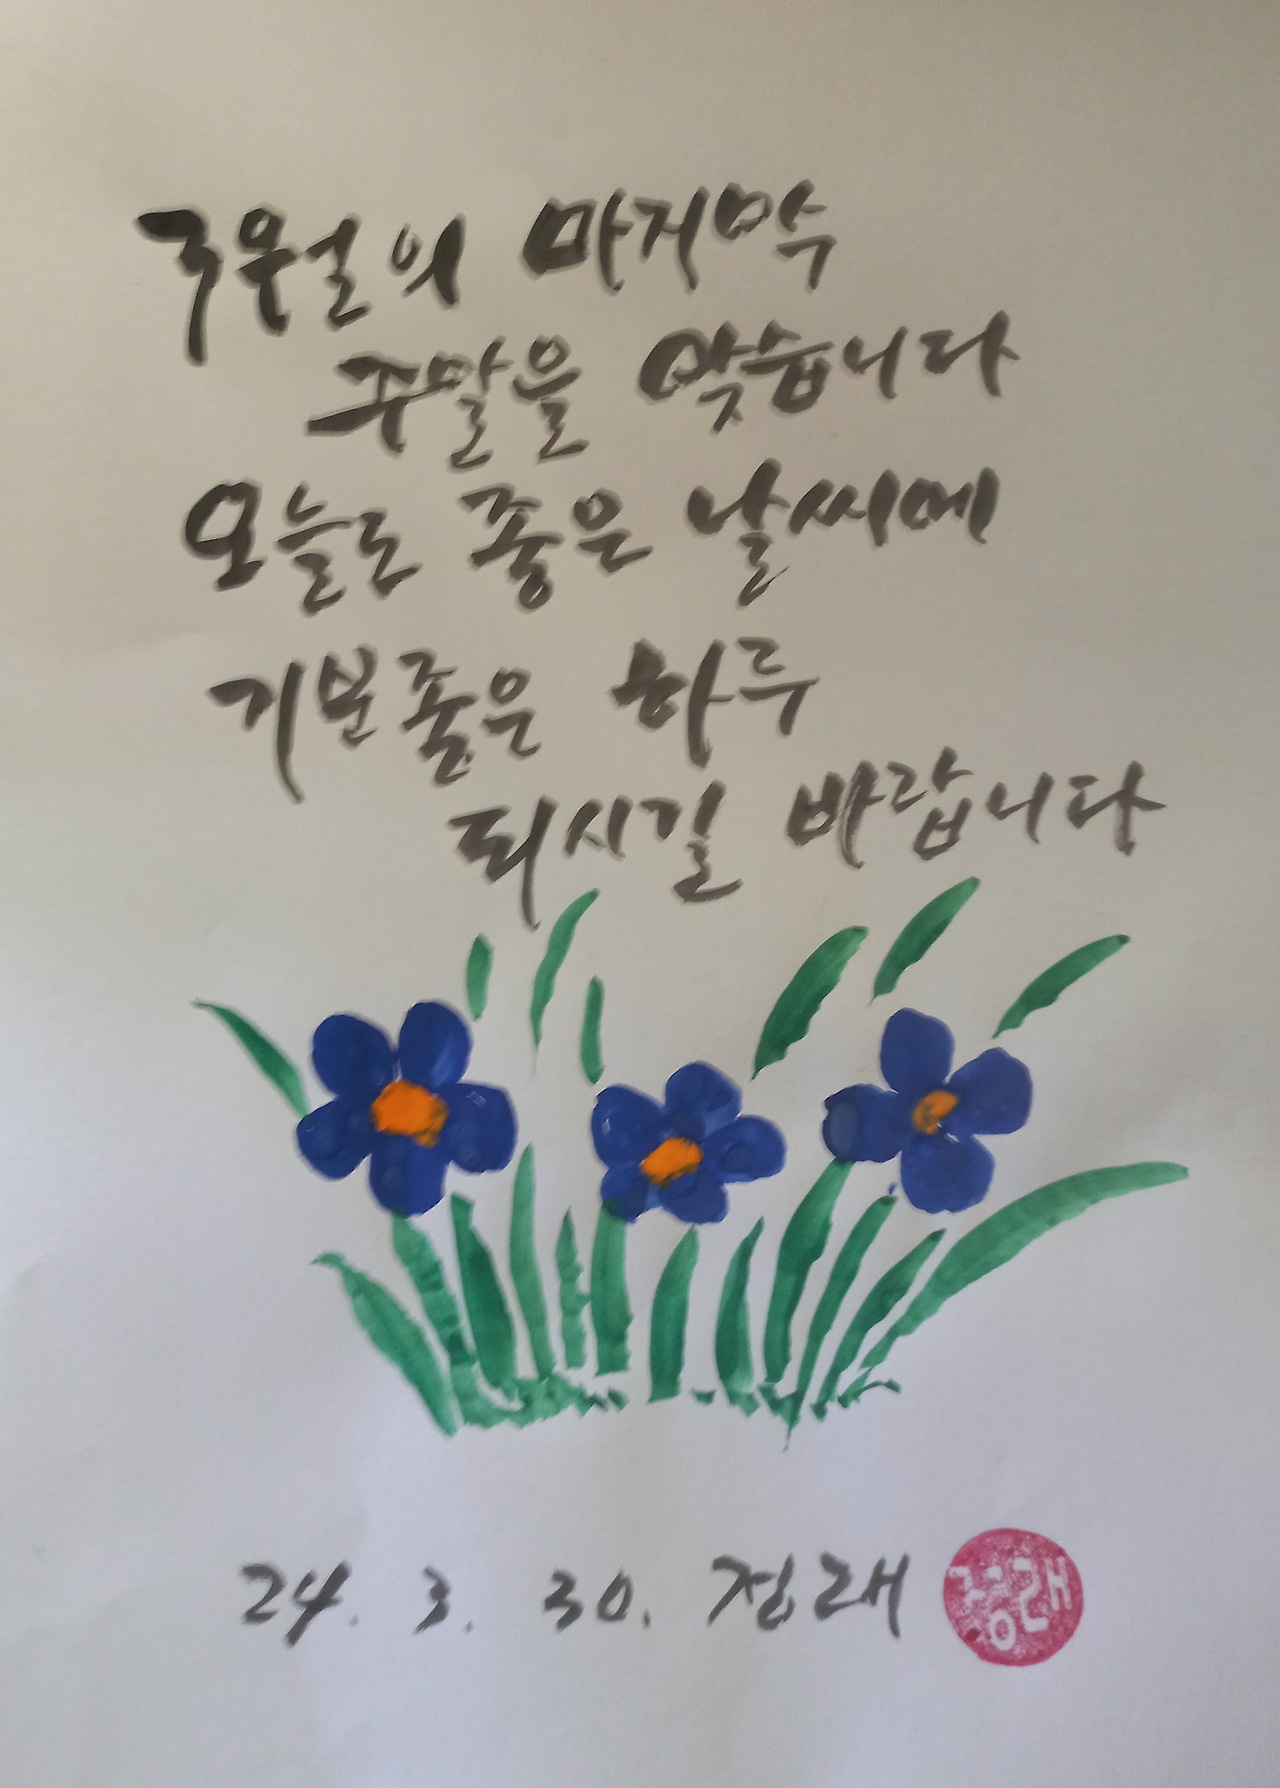 3월의 마지막
주말을 맞습니다
오늘도 좋은 날씨에
기분좋은 하루
되시길 바랍니다
24. 3. 30. 정래 정래